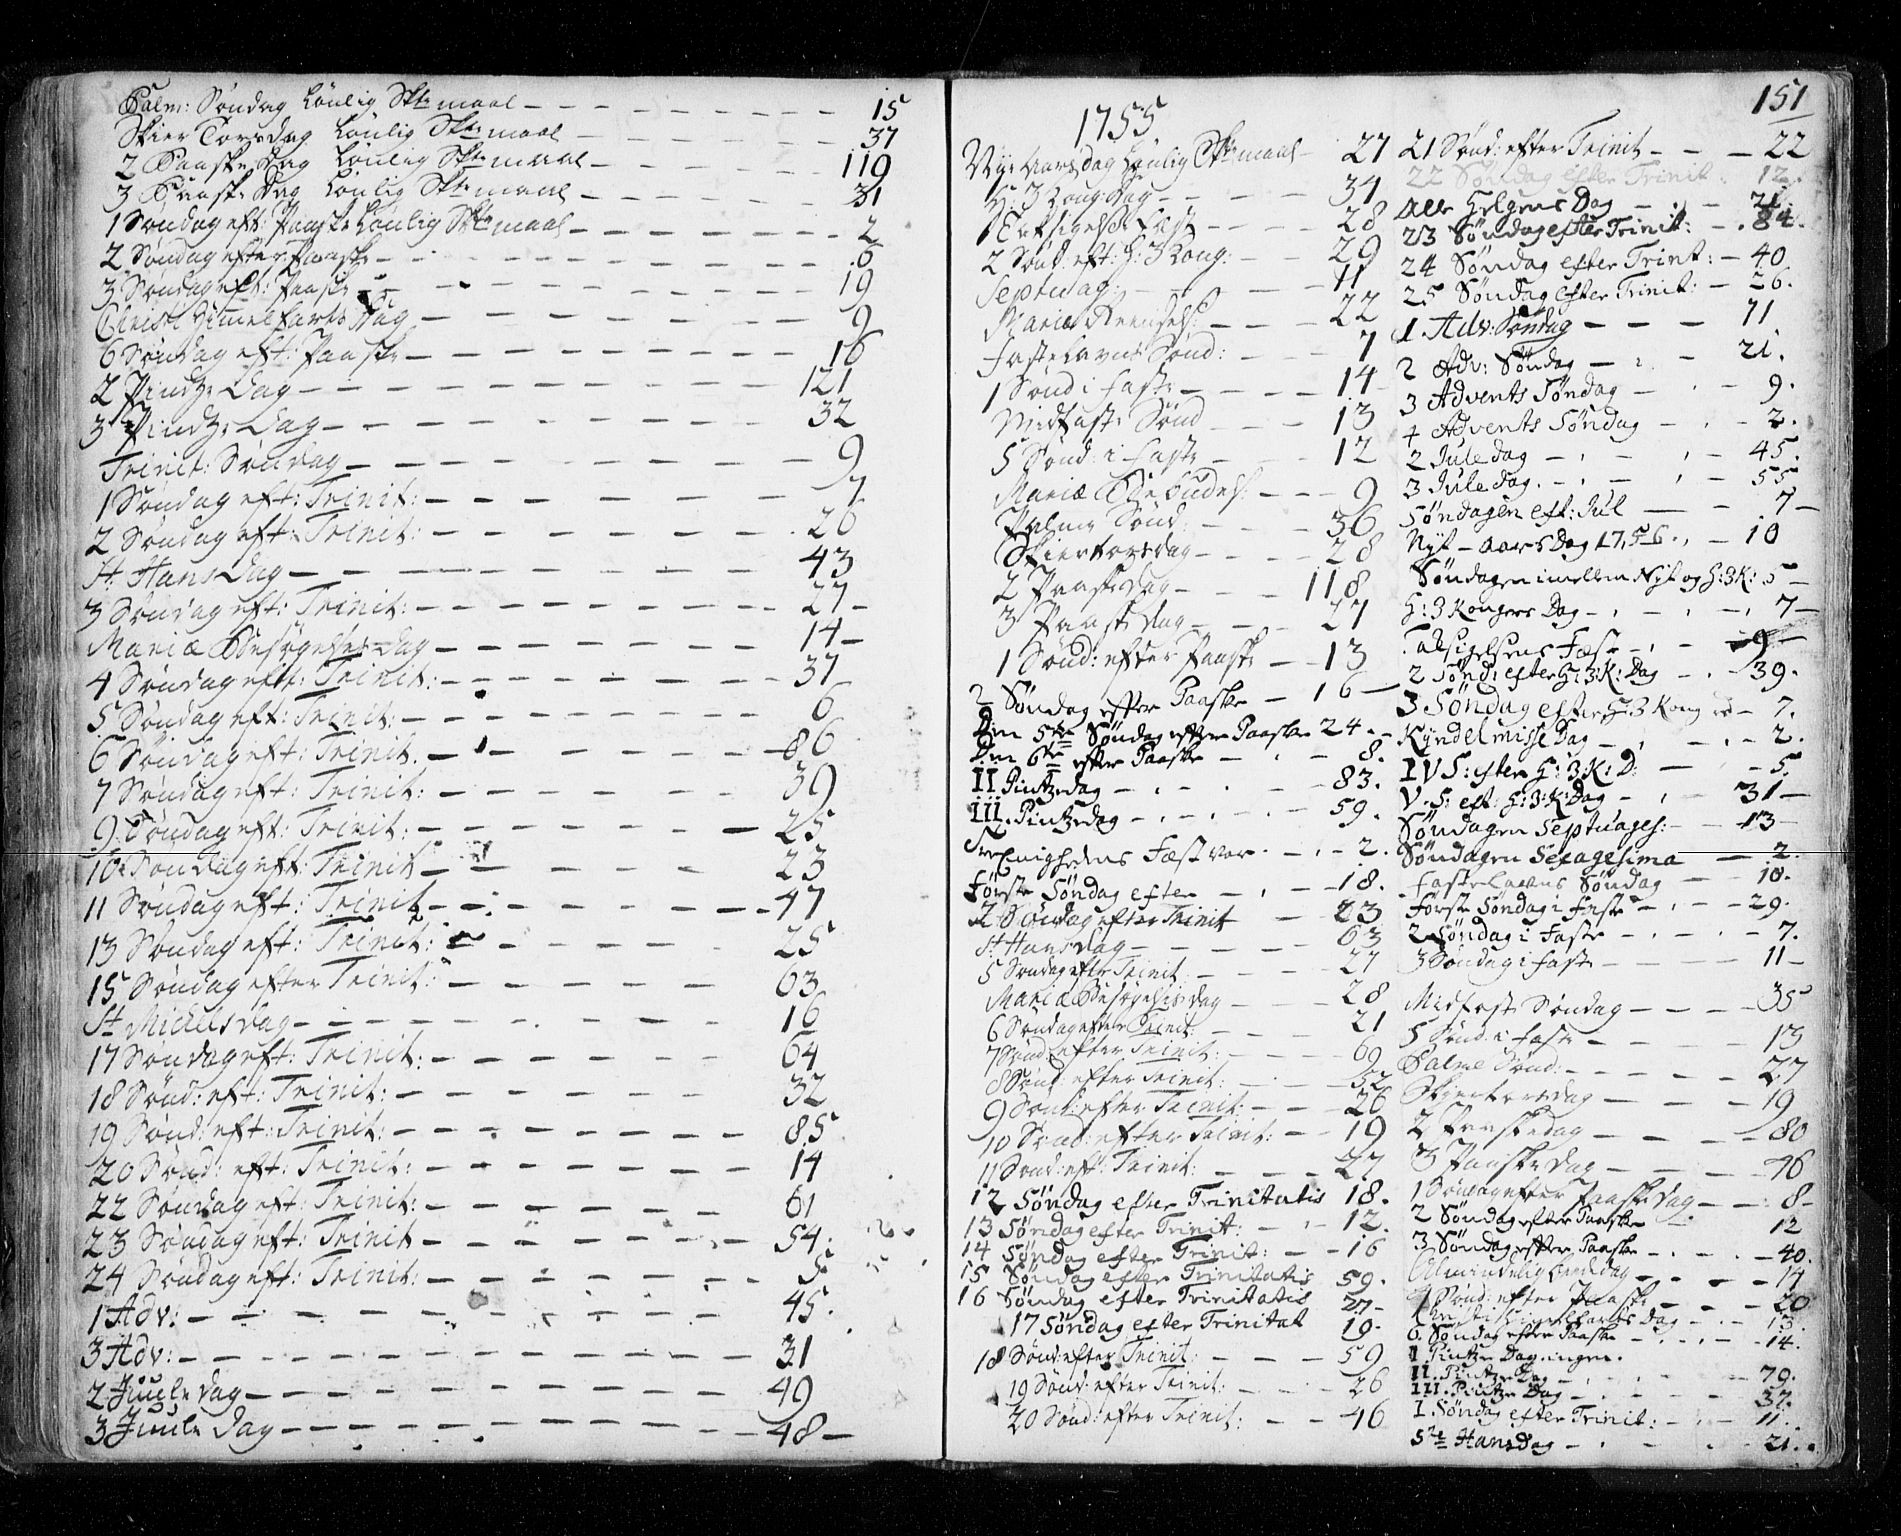 Palm: Søndag Lønlig Skr:maal — 15
Skier Torsdag Lønlig Skr:maal — 37
2 Paaske Dag Lønlig Skr:maal — 119
3 Paaske Dag Lønlig Skr:maal — 31
1 Søndag eft: Paaske Lønlig Skr:maal — 2
2 Søndag efter Paaske — 6
3 Søndag eft: Paaske — 19
Christi Himmelfarts Dag — 9
6 Søndag eft: Paaske — 16
2 Pindz: Dag — 121
3 Pindz: Dag — 32
Trinit: Søndag — 9
1 Søndag eft: Trinit: — 7
2 Søndag eft: Trinit: — 26
St: Hans Dag — 43
3 Søndag eft: Trinit: — 27
Mariæ Besøgelses Dag — 14
4 Søndag eft: Trinit: — 37
5 Søndag eft: Trinit: — 6
6 Søndag eft: Trinit. — 86
7 Søndag eft: Trinit: — 39
9 Søndag eft: Trinit: — 25
10 Søndag eft: Trinit — 23
11 Søndag eft: Trinit — 47
13 Søndag eft: Trinit: — 25
15 Søndag efter Trinit: — 63
St Michelsdag — 16
17 Søndag eft: Trinit: — 64
18 Sønd: eft: Trinit: — 32
19 Sønd: eft: Trinit: — 85
20 Sønd: eft: Trinit: — 14
22 Søndag eft: Trinit: — 61
23 Søndag eft: Trinit — 54
24 Søndag eft: Trinit: — 5
1 Adv: — 45
3 Adv: — 31
2 Juule dag — 49
3 Juule dag — 48
1755
Nye Aarsdag Lønlig Skr:maal — 27
H: 3 Kong: Dag — 34
1 — 28
2 Sønd: eft: H: 3 Kong: — 29
Septuag: — 11
Mariæ Renselse — 22
Fastelavns Sønd: — 7
1 Sønd i Faste — 14
Midfaste Sønd — 13
5 Sønd: i Faste — 12
Mariæ Bebudels: — 9
Palme Sønd: — 36
Skiertorsdag — 28
2 Paaskedag — 118
3 Paaske dag — 27
1 Sønd: efter Paaske — 13
2 Søndag efter Paaske — 16
Den 5te Søndag efter Paaske 24.
Den 6te efter Paaske — 8.
II Pintzedag — 83.
III. Pintzedag — 59.
Treenighedens Fæst var — 2.
Første Søndag efter — 18.
2 Søndag efter Trinit — 23
St Hansdag — 63
5 Søndag efter Trinit: — 27
Mariæ Besøgelses dag — 28
6 Søndag efter Trinit: — 21
7 Sønd: efter Trinit: — 69
8 Sønd: efter Trinit: — 52
9 Sønd: efter Trinit: — 26
10 Sønd: efter Trinit: — 19
11 Sønd: eft: Trinit: — 27
12 Søndag efter Trinitatis 18.
13 Søndag efter Trinit: — 12.
14 Søndag efter Trinit: — 16
15 Søndag efter Trinitatis 59.
16 Søndag efter Trinitatis 27
17 Søndag efter Trinitat 19.
18 Sønd: efter Trinit: — 59
19 Sønd: efter Trinit: — 26
20 Sønd: efter Trinit: — 46
151
21 Sønd: efter Trinit — 22
22 Søndag efter Trinit: 12.
Alle Helgens Dag — 21.
23 Søndag efter Trinit: — 84.
24 Søndag efter Trinit: — 40
25 Søndag efter Trinit: — 26.
1 Adv: Søndag — 11
2 Adv: Søndag — 21.
3 Advents Søndag — 9.
4 Advents Søndag — 2.
2 Juledag — 45.
3 Juledag. — 55
Søndagen eft: Jul — 7
Nyt-aars Dag 1756. — 10
Søndagen imellem Nyt og H: 3 K: 5
H: 3 Kongers Dag — 7
Fæst — 9
2 Sønd: efter H: 3: K: Dag — 39.
3 Søndag efter H: 3 Kong — 7.
Kyndelmisse Dag — 2.
IV S: efter H: 3: K: D: — 5.
V. S: eft: H: 3: K: Dag — 31
Søndagen Septuages: — 13
Søndagen Sexagesima — 2.
Fastelavns Søndag — 10.
Første Søndag i Faste — 29.
2 Søndag i Faste — 7.
3 Søndag i Faste — 11
Midfast Søndag — 35
5 Sønd: i Faste — 13
Palme Sønd: — 27
Skiertorsdag — 19
2 Paaskedag — 80
3 Paaske dag — 46
1 Søndag efter Paaskedag — 8
2 Søndag efter Paaske 12
3 Søndag efter Paaske — 40.
Almindelig Bededag — 14
4 Sønd: efter Paaske — 20
Christi Himmelfarts Dag — 13.
6 Søndag efter Paaske — 14.
I Pintze Dag ingen.
II. Pintze Dag — 79.
III. Pintze Dag — 37.
I. Søndag efter Trinit: — 11.
Ste Hansdag — 21.